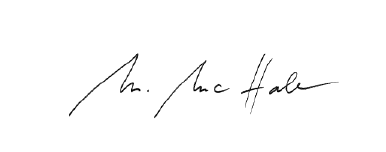 M. Mc Hale